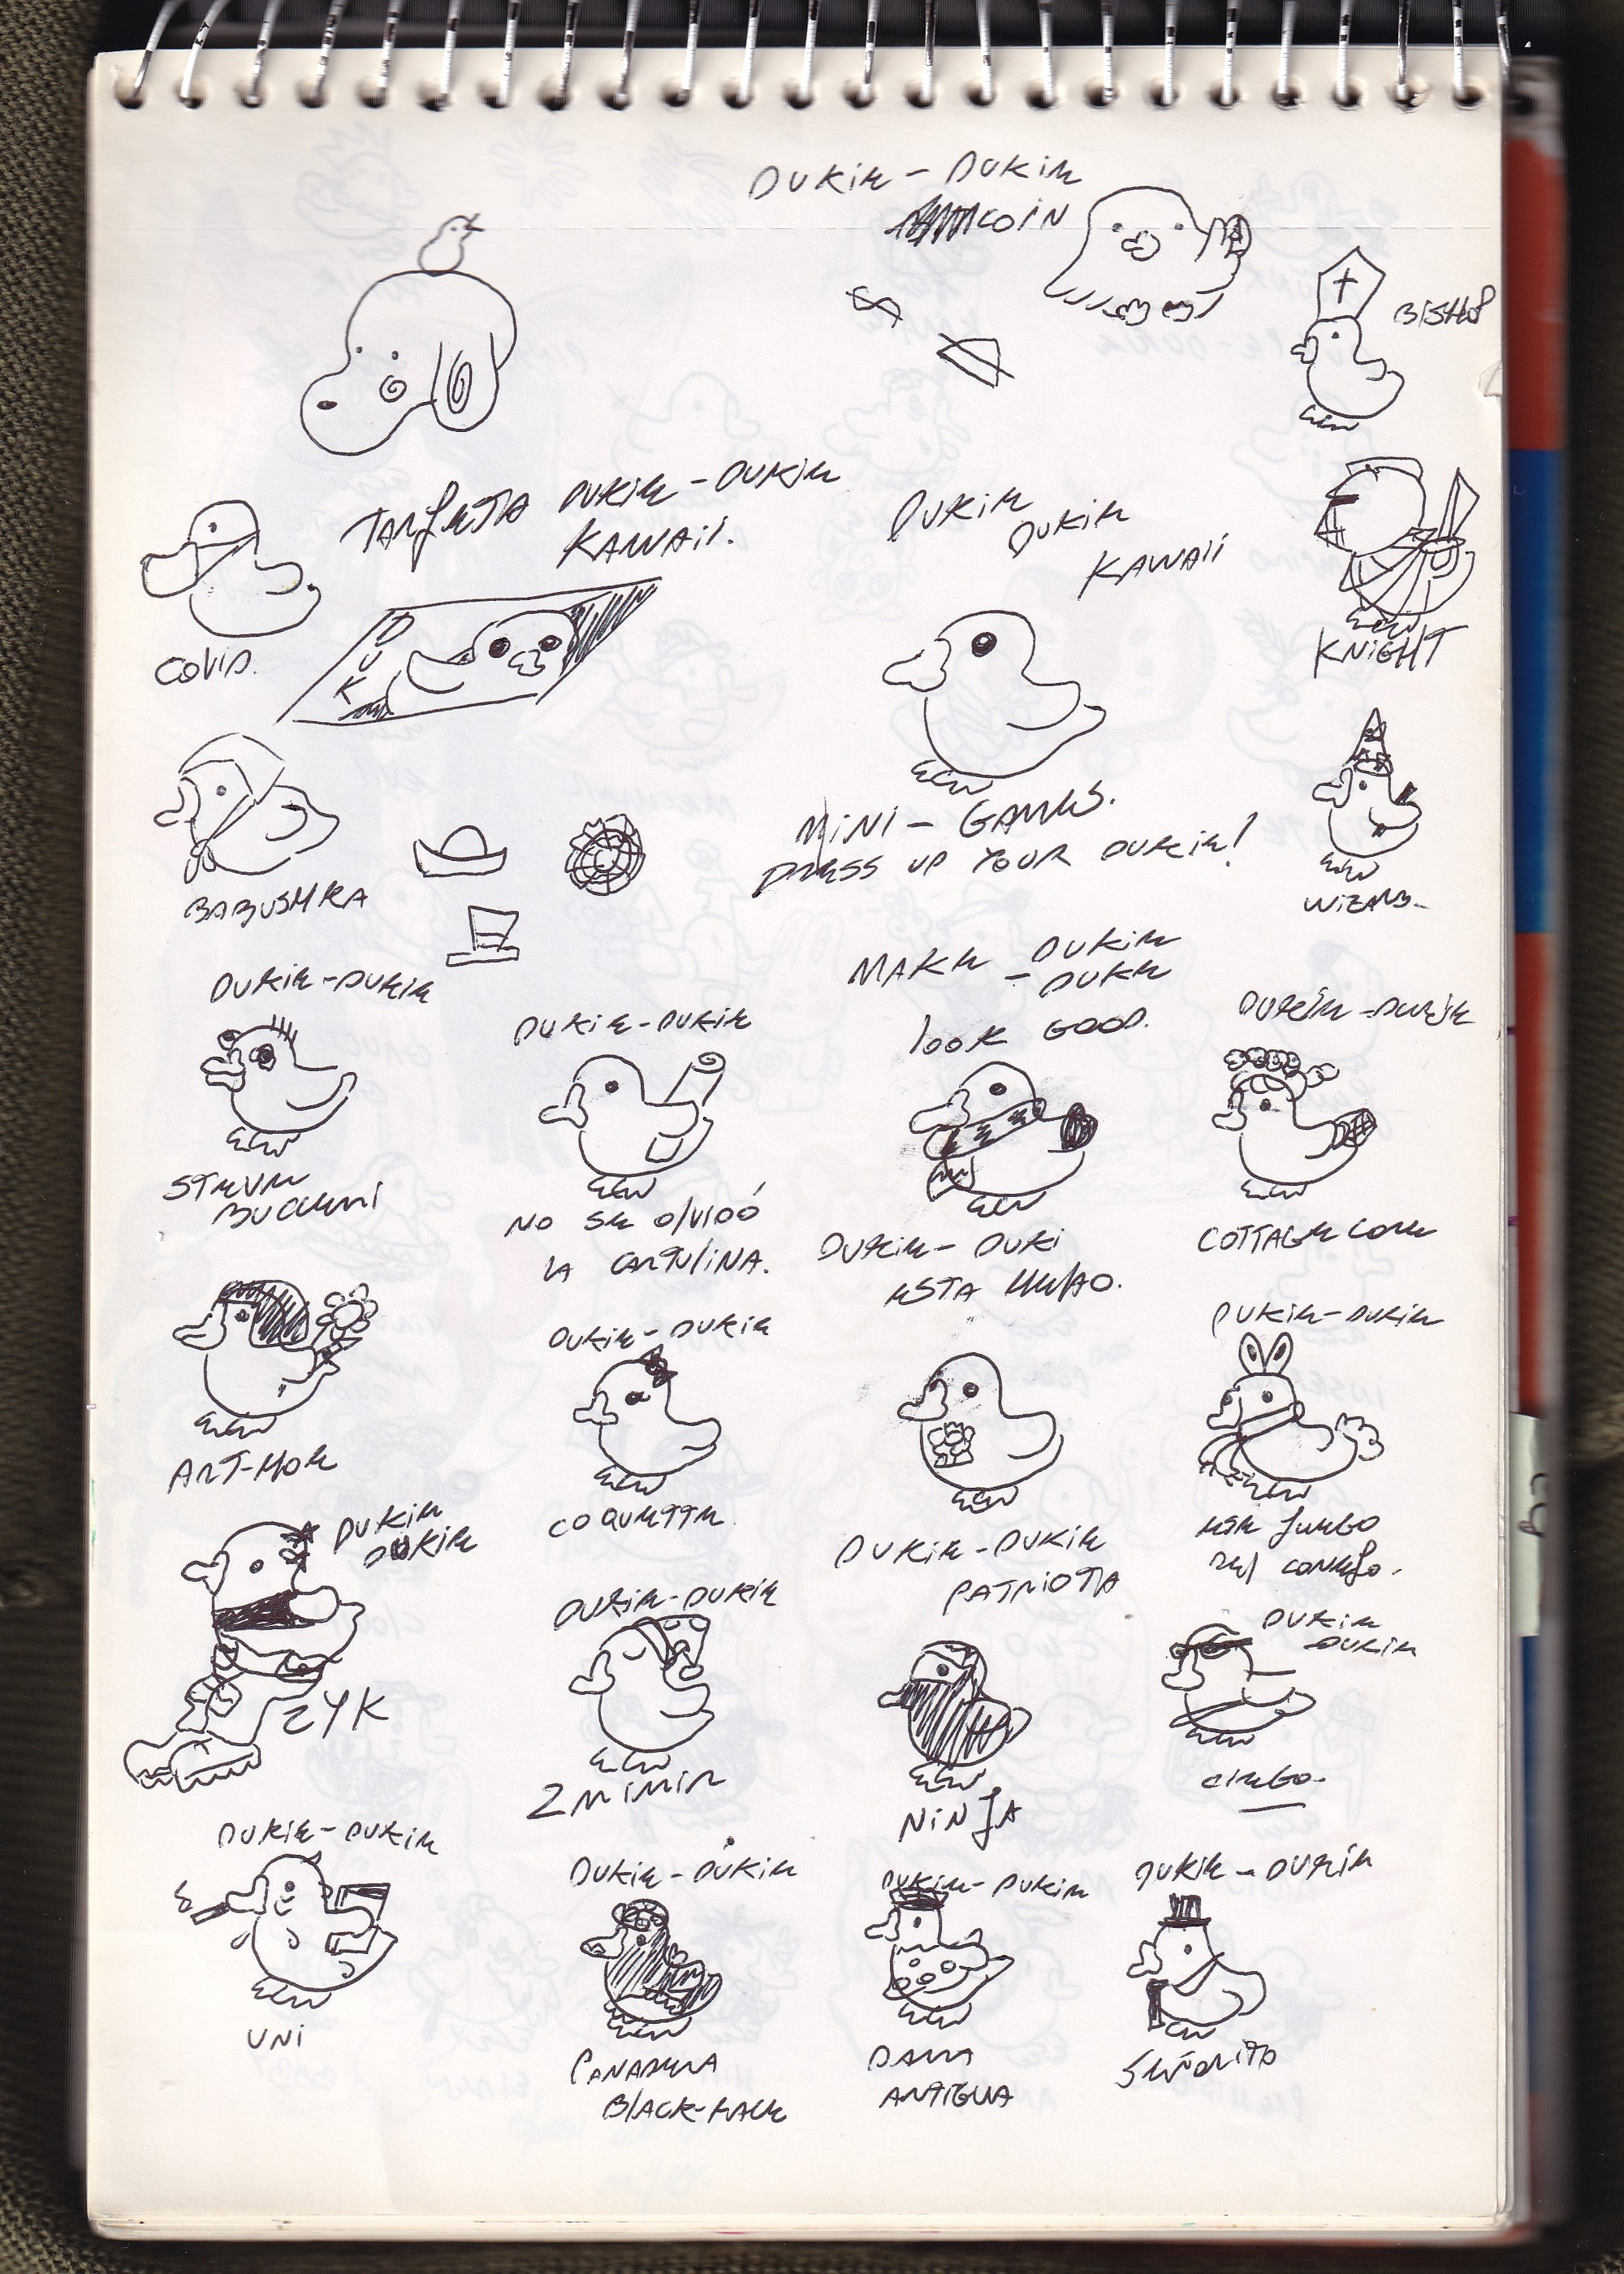 DUKIE - DUKIE
COIN
$
BISHOP
TARJETA DUKIE - DUKIE
KAWAII.
DUKIE
DUKIE
KAWAII
COVID.
DUK
KNIGHT
MINI - GAMES.
DRESS UP YOUR DUKIE!
BABUSHKA
WIZARD.
MAKE DUKIE
- DUKIE
LOOK GOOD.
DUKIE - DUKIE
STEVE
BUCCEMI
DUKIE - DUKIE
NO SE OLVIDÓ
LA CARTULINA.
DUKIE - DUKI
ESTA
DUKIE - DUKIE
COTTAGE CORE
ART-HOE
DUKIE - DUKIE
COQUETTE
DUKIE - DUKIE
PATRIOTA
DUKIE - DUKIE
ESE JUEGO
DEL CONEJO.
DUKIE
DUKIE
2YK
DUKIE - DUKIE
2 MIMIR
NINJA
DUKIE
DUKIE
CIEGO.
DUKIE - DUKIE
UNI
DUKIE - DUKIE
PANADERA
BLACK-FACE
DUKIE - DUKIE
DAMA
ANTIGUA
DUKIE - DUKIE
SEÑORITO